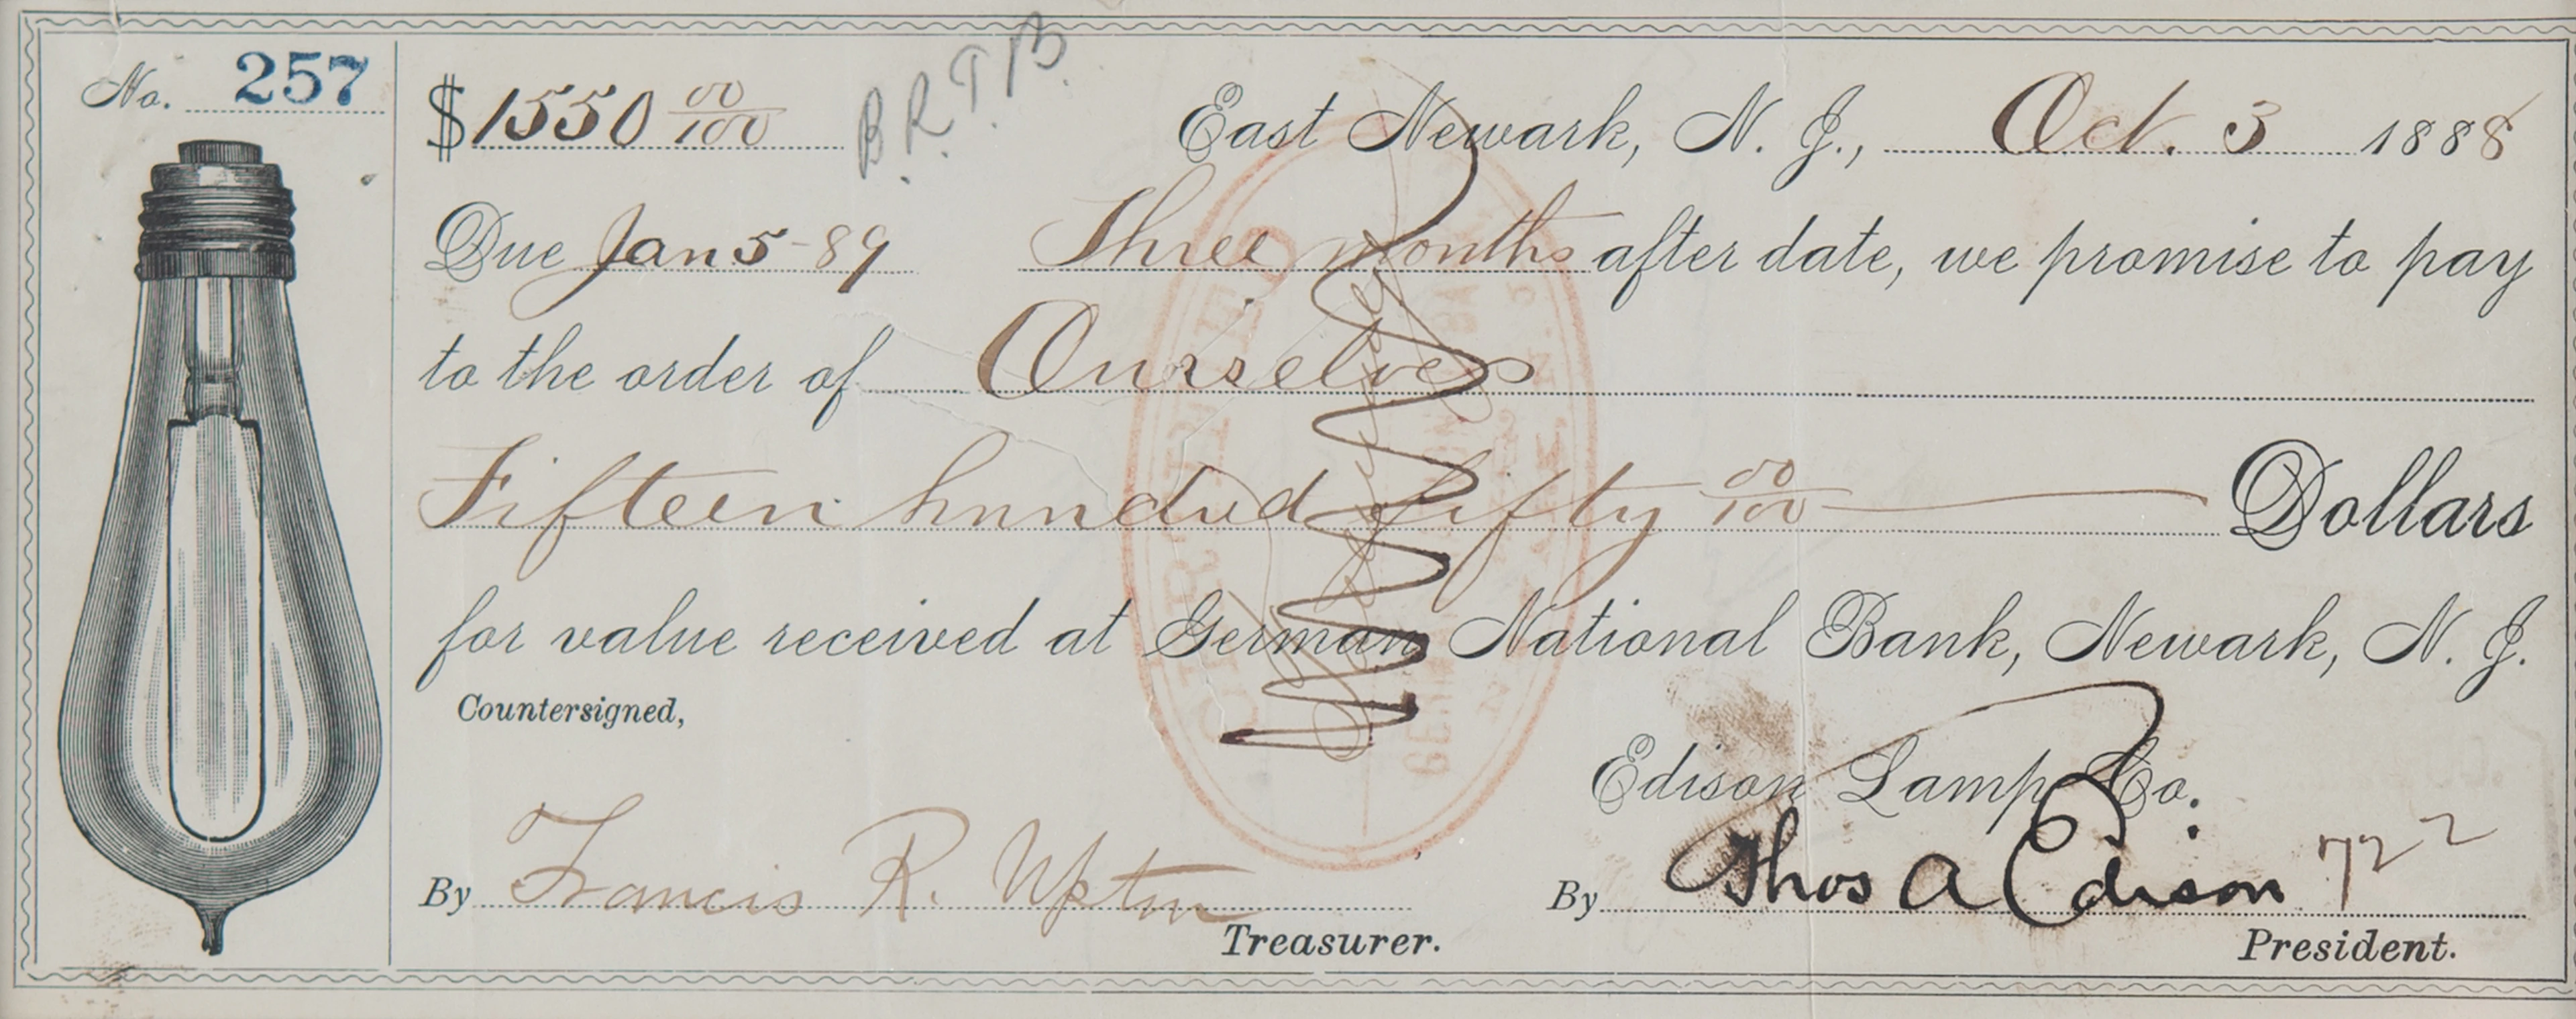 No. 257
B.R.T.B.
$1550 00/100 East Newark, N. J., Oct. 3 1888
Due Jan 5-89 Three months after date, we promise to pay
to the order of Ourselves
Fifteen hundred fifty 00/100 Dollars
for value received at German National Bank, Newark, N. J.
Countersigned,
Edison Lamp Co.
By Francis R. Upton By Thos A Edison 722
Treasurer. President.